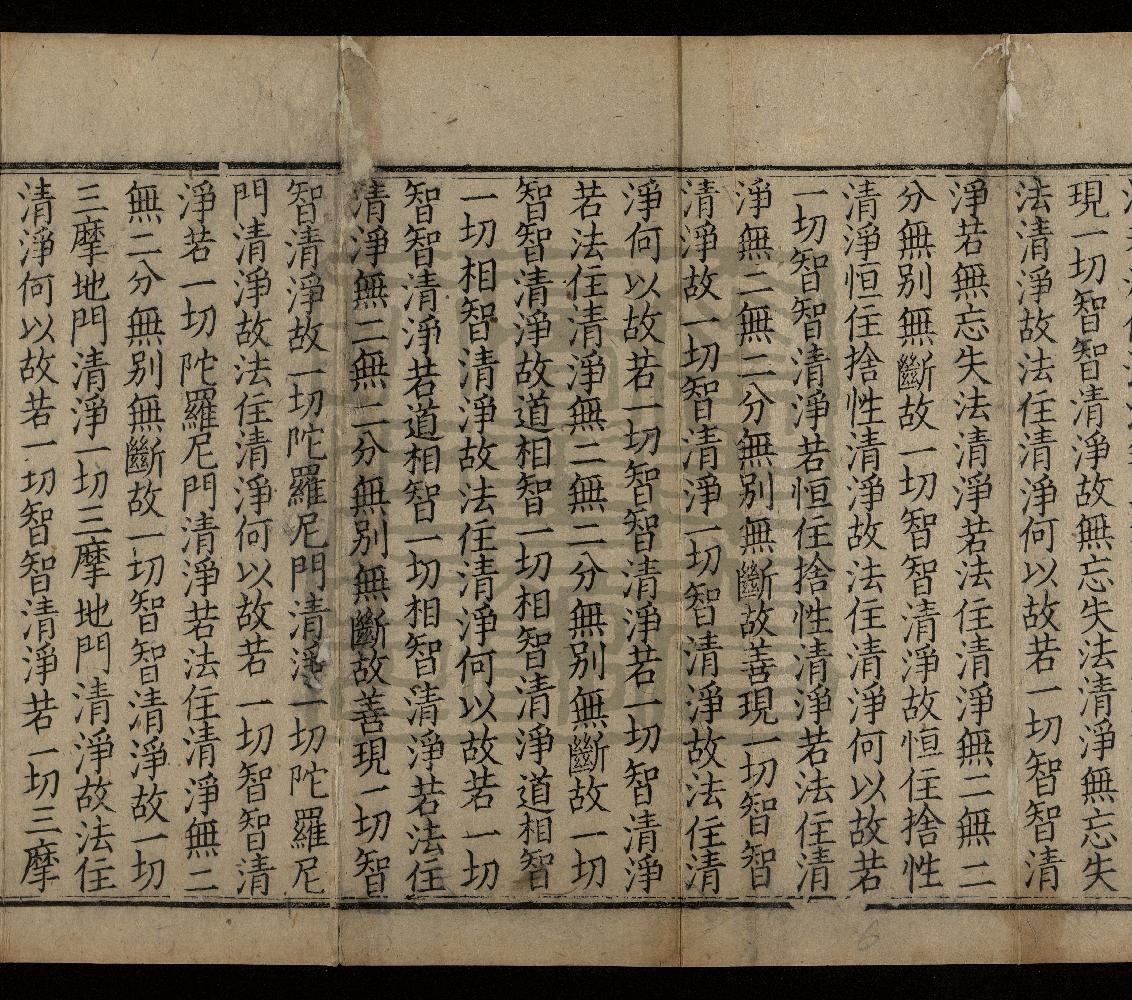 現一切智智清淨故無忘失法清淨無忘失
法清淨故法住清淨何以故若一切智智清
淨若無忘失法清淨若法住清淨無二無二
分無別無斷故一切智智清淨故恒住捨性
清淨恒住捨性清淨故法住清淨何以故若
一切智智清淨若恒住捨性清淨若法住清
淨無二無二分無別無斷故善現一切智智
清淨故一切智清淨一切智清淨故法住清
淨何以故若一切智智清淨若一切智清淨
若法住清淨無二無二分無別無斷故一切
智智清淨故道相智一切相智清淨道相智
一切相智清淨故法住清淨何以故若一切
智智清淨若道相智一切相智清淨若法住
清淨無二無二分無別無斷故善現一切智
智清淨故一切陀羅尼門清淨一切陀羅尼
門清淨故法住清淨何以故若一切智智清
淨若一切陀羅尼門清淨若法住清淨無二
無二分無別無斷故一切智智清淨故一切
三摩地門清淨一切三摩地門清淨故法住
清淨何以故若一切智智清淨若一切三摩